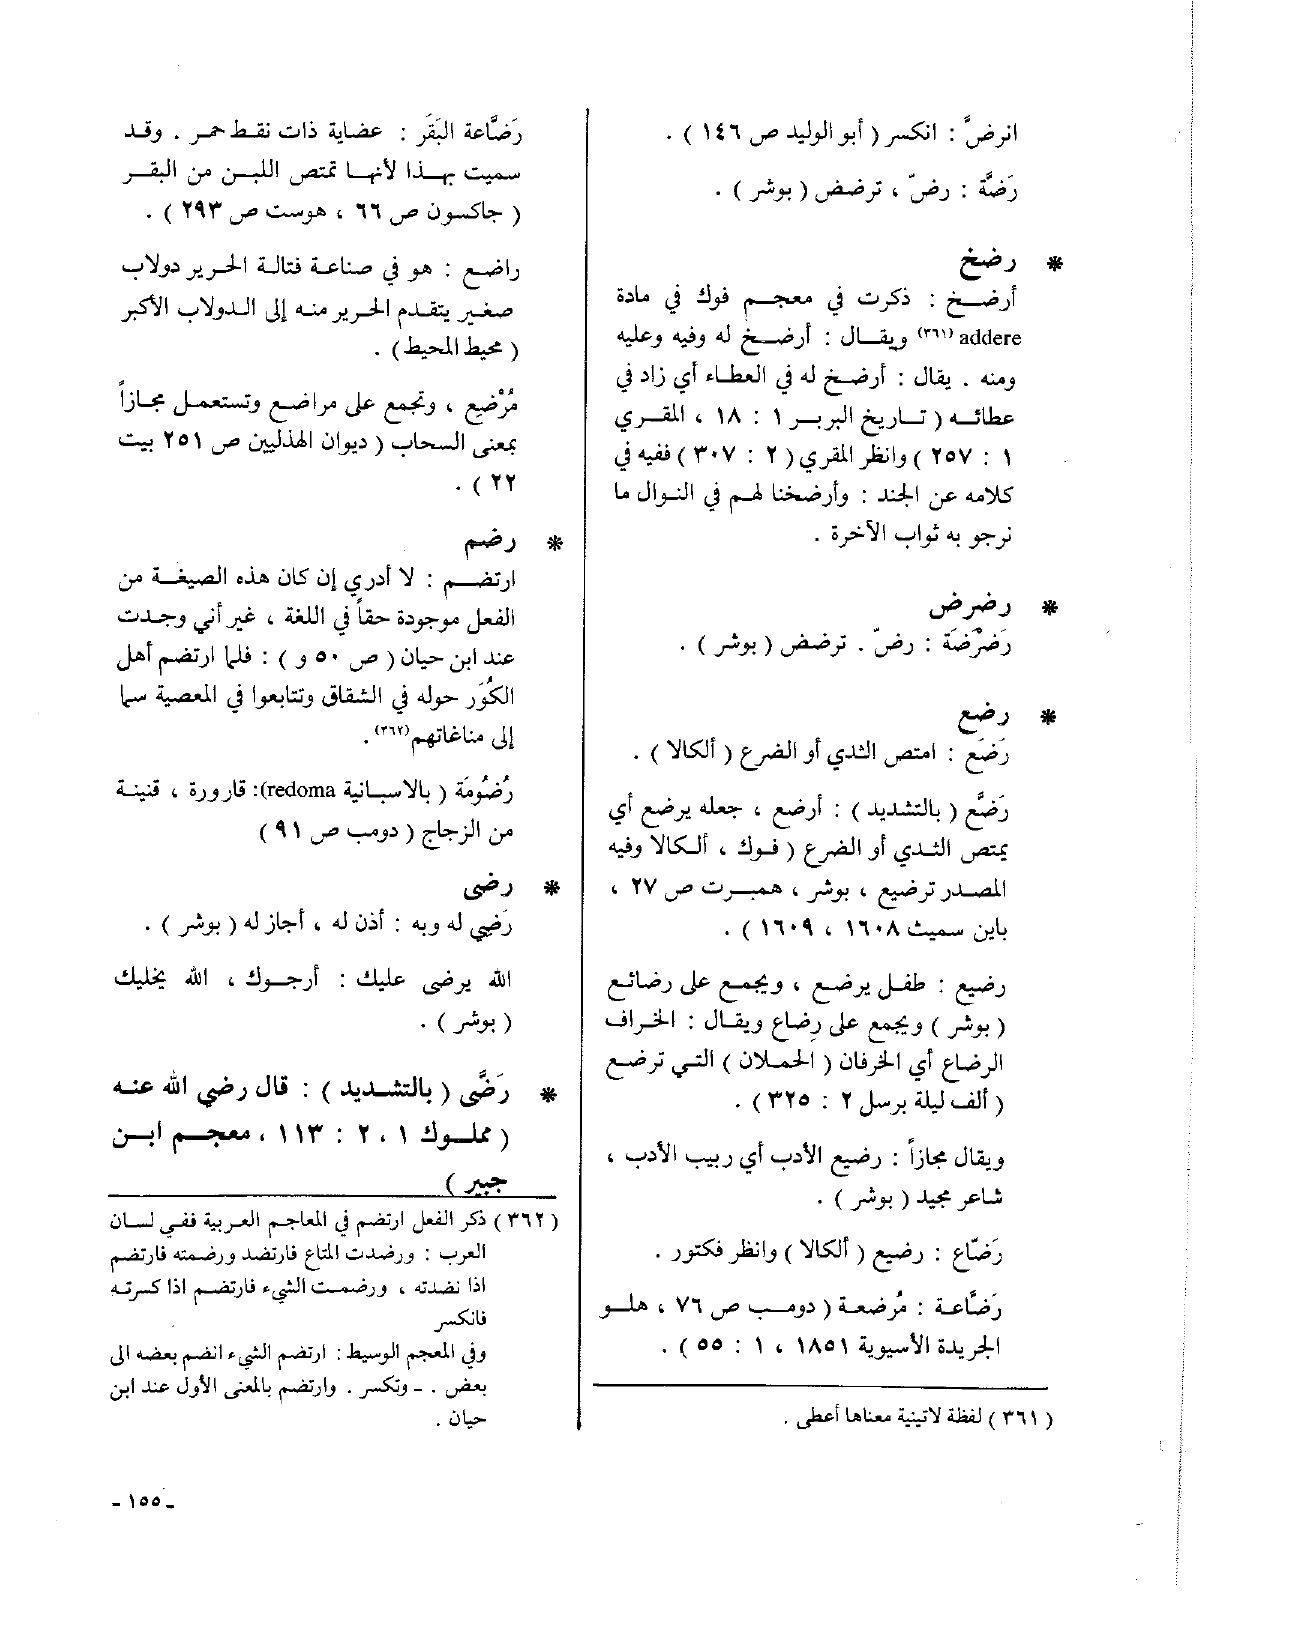 انرضَّ : انكسر ( أبو الوليد ص ١٤٦ ) .
رَضَّة : رضّ ، ترضض ( بوشر ) .
* رضخ
أرضخ : ذكرت في معجم فوك في مادة
addere (٣٦١) ويقال : أرضخ له وفيه وعليه
ومنه . يقال : أرضخ له في العطاء أي زاد في
عطائه ( تاريخ البربر ١ : ١٨ ، المقري
١ : ٢٥٧ ) وانظر المقري ( ٢ : ٣٠٧ ) ففيه في
كلامه عن الجند : وأرضخنا لهم في النوال ما
نرجو به ثواب الآخرة .
* رضرض
رَضْرَضَة : رضّ . ترضض ( بوشر ) .
* رضع
رَضَع : امتص الثدي أو الضرع ( ألكالا ) .
رَضَّع ( بالتشديد ) : أرضع ، جعله يرضع أي
يمتص الثدي أو الضرع ( فوك ، ألكالا وفيه
المصدر ترضيع ، بوشر ، همبرت ص ٢٧ ،
باين سميث ١٦٠٨ ، ١٦٠٩ ) .
رضيع : طفل يرضع ، ويجمع على رضائع
( بوشر ) ويجمع على رضاع ويقال : الخراف
الرضاع أي الخرفان ( الحملان ) التي ترضع
( ألف ليلة برسل ٢ : ٣٢٥ ) .
ويقال مجازاً : رضيع الأدب أي ربيب الأدب ،
شاعر مجيد ( بوشر ) .
رَضّاع : رضيع ( ألكالا ) وانظر فكتور .
رَضَّاعة : مُرضعة ( دومب ص ٧٦ ، هلو
الجريدة الآسيوية ١٨٥١ ، ١ : ٥٥ ) .
( ٣٦١ ) لفظة لاتينية معناها أعطى .
رَضَّاعة البَقَر : عضاية ذات نقط حمر . وقد
سميت بهذا لأنها تمتص اللبن من البقر
( جاكسون ص ٦٦ ، هوست ص ٢٩٣ ) .
راضع : هو في صناعة فتالة الحرير دولاب
صغير يتقدم الحرير منه إلى الدولاب الأكبر
( محيط المحيط ) .
مُرْضِع ، وتجمع على مراضع وتستعمل مجازاً
بمعنى السحاب ( ديوان الهذليين ص ٢٥١ بيت
٢٢ ) .
* رضم
ارتضم : لا أدري إن كان هذه الصيغة من
الفعل موجودة حقاً في اللغة ، غير أني وجدت
عند ابن حيان ( ص ٥٠ و ) : فلما ارتضم أهل
الكُوَر حوله في الشقاق وتتابعوا في المعصية سما
إلى مناغاتهم (٣٦٢) .
رُضُومَة ( بالاسبانية redoma): قارورة ، قنينة
من الزجاج ( دومب ص ٩١ )
* رضى
رَضِي له وبه : أذن له ، أجاز له ( بوشر ) .
الله يرضى عليك : أرجوك ، الله يخليك
( بوشر ) .
* رَضَّى ( بالتشديد ) : قال رضي الله عنه
( مملوك ١ ، ٢ : ١١٣ ، معجم ابن
جبير )
( ٣٦٢ ) ذكر الفعل ارتضم في المعاجم العربية ففي لسان
العرب : ورضدت المتاع فارتضد ورضمته فارتضم
اذا نضدته ، ورضمت الشيء فارتضم اذا كسرته
فانكسر
وفي المعجم الوسيط : ارتضم الشيء انضم بعضه الى
بعض . ـ وتكسر . وارتضم بالمعنى الأول عند ابن
حيان .
ـ ١٥٥ ـ